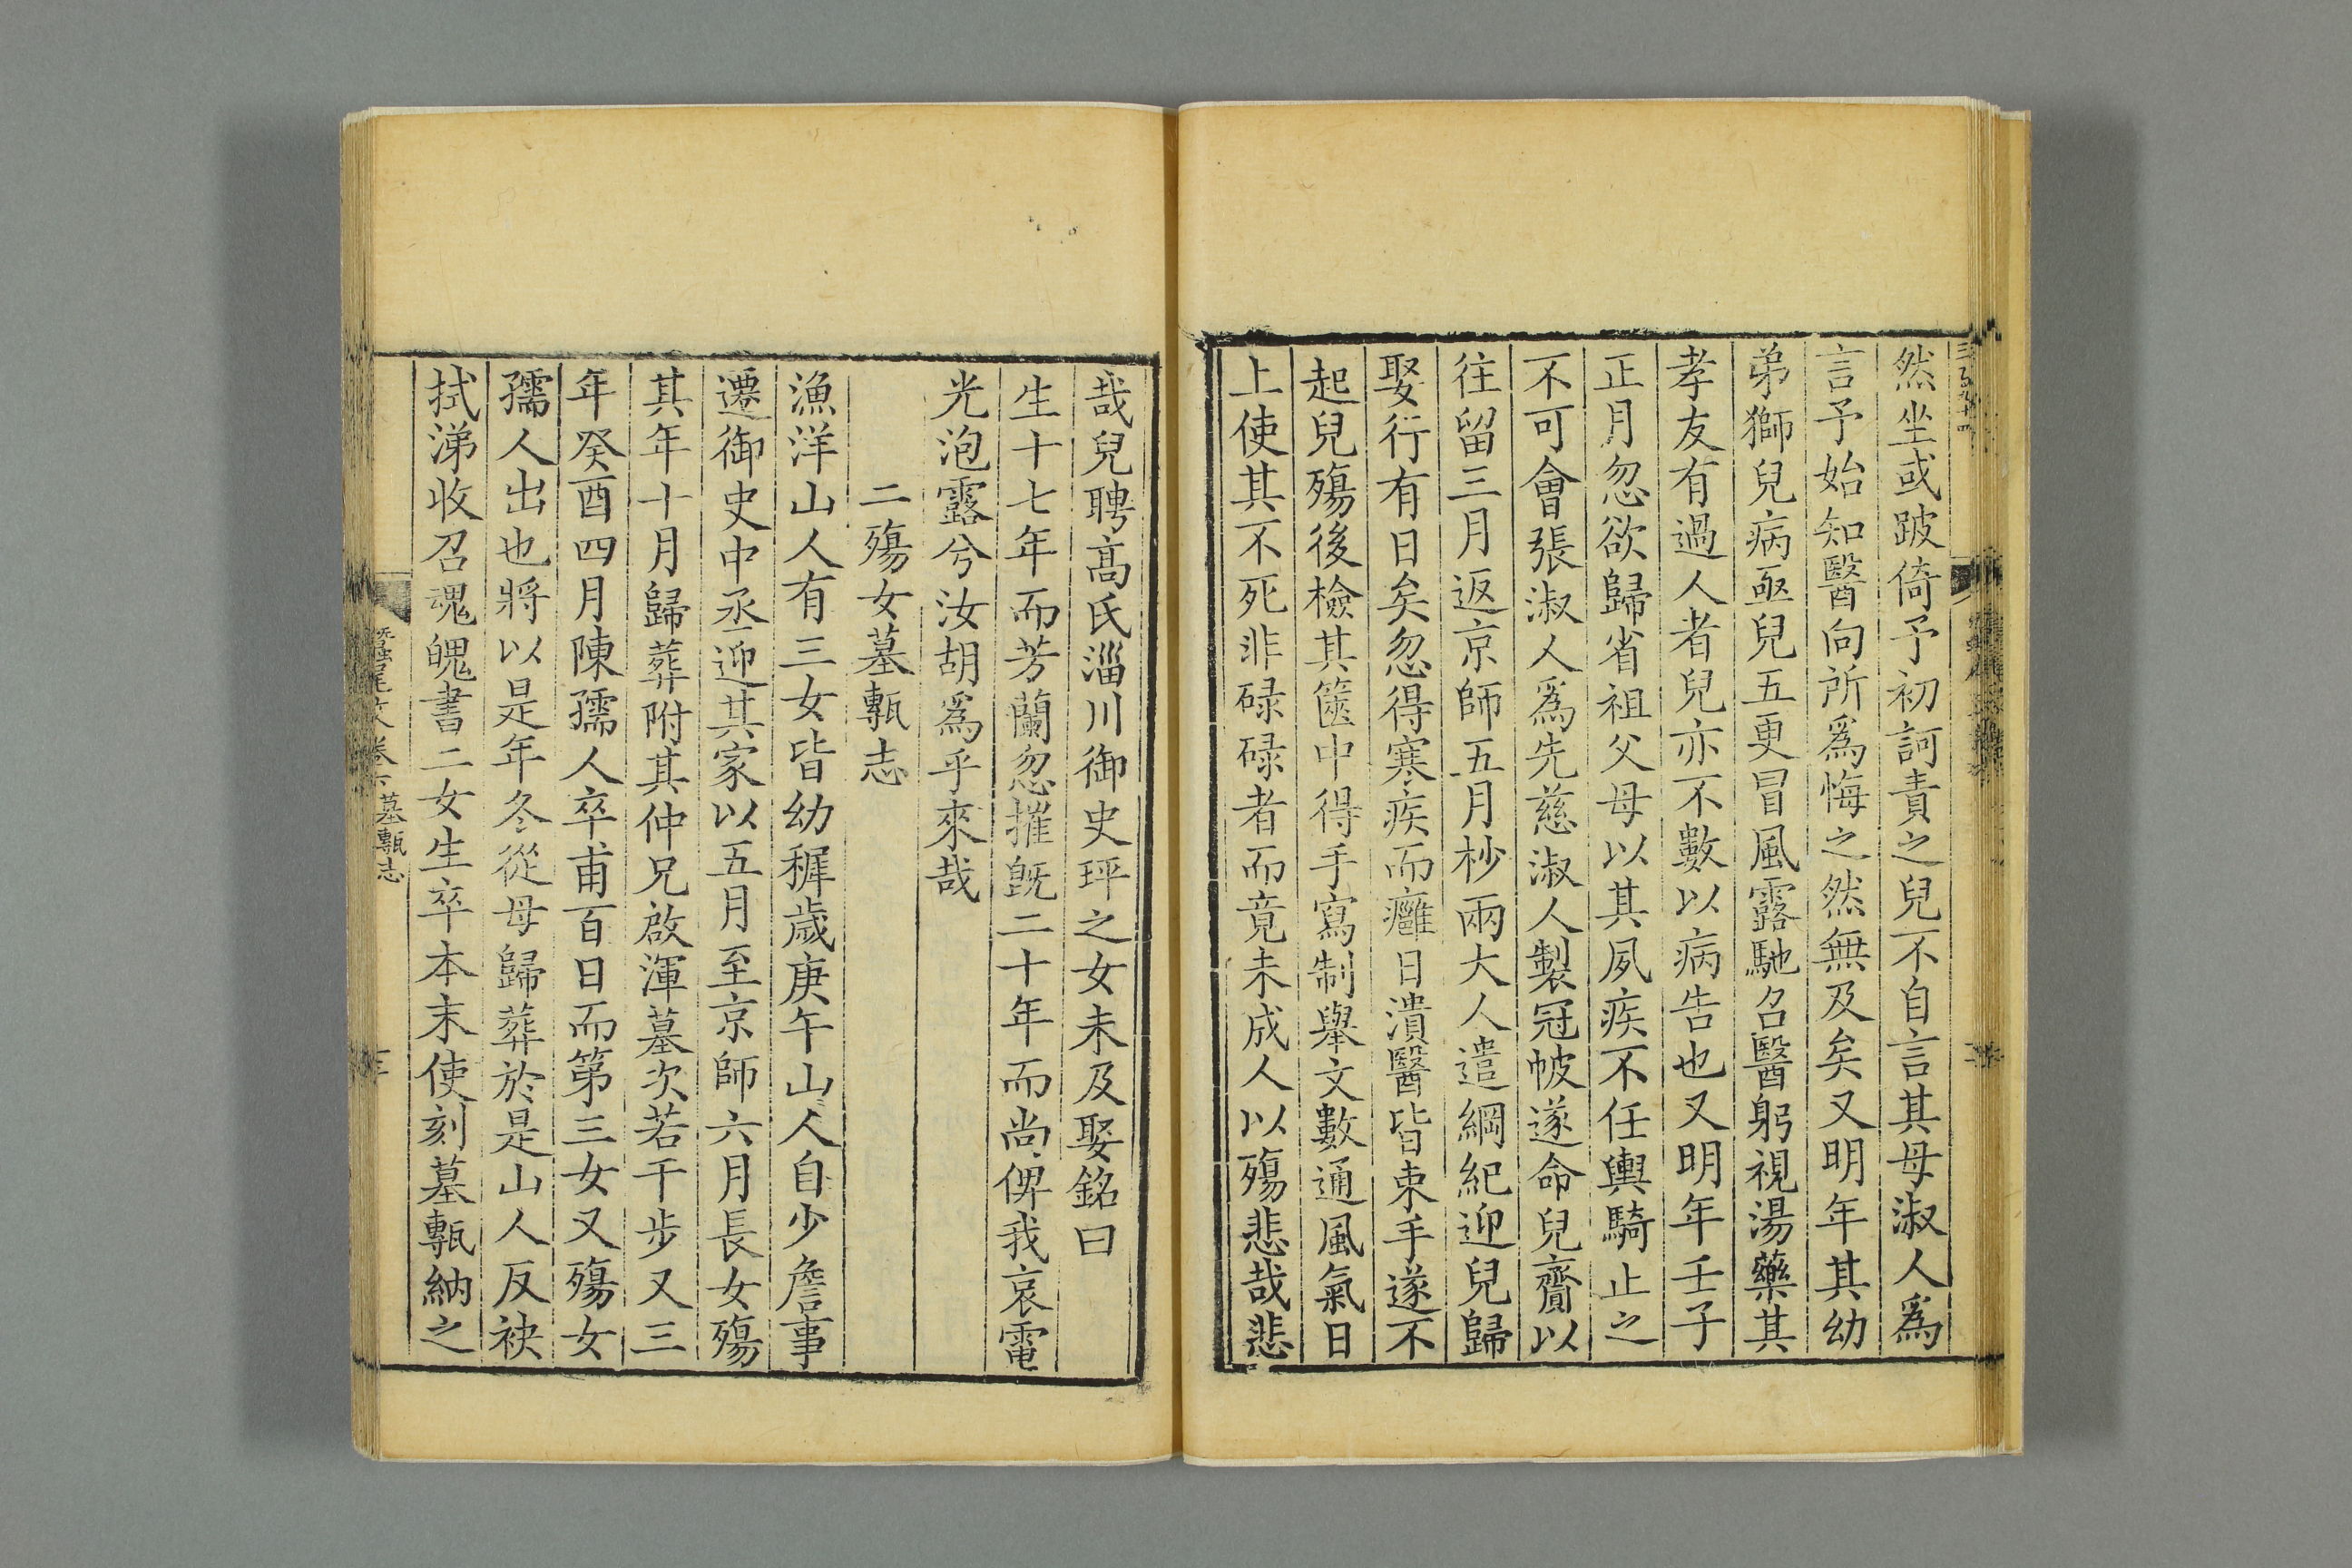 然坐或跛倚予初訶責之兒不自言其母淑人爲
言予始知醫向所爲悔之然無及矣又明年其幼
弟獅兒病亟兒五更冒風露馳召醫躬視湯藥其
孝友有過人者兒亦不數以病告也又明年壬子
正月忽欲歸省祖父母以其夙疾不任輿騎止之
不可會張淑人爲先慈淑人製冠帔遂命兒齎以
往留三月返京師五月杪兩大人遣綱紀迎兒歸
娶行有日矣忽得寒疾而癰日潰醫皆束手遂不
起兒殤後檢其篋中得手寫制舉文數通風氣日
上使其不死非碌碌者而竟未成人以殤悲哉悲
哉兒聘高氏淄川御史玶之女未及娶銘曰
生十七年而芳蘭忽摧旣二十年而尚俾我哀電
光泡露兮汝胡爲乎來哉
二殤女墓甎志
漁洋山人有三女皆幼穉歲庚午山人自少詹事
遷御史中丞迎其家以五月至京師六月長女殤
其年十月歸葬附其仲兄啟渾墓次若干步又三
年癸酉四月陳孺人卒甫百日而第三女又殤女
孺人出也將以是年冬從母歸葬於是山人反袂
拭涕收召魂魄書二女生卒本末使刻墓甎納之
蠶尾文卷六 墓甎志